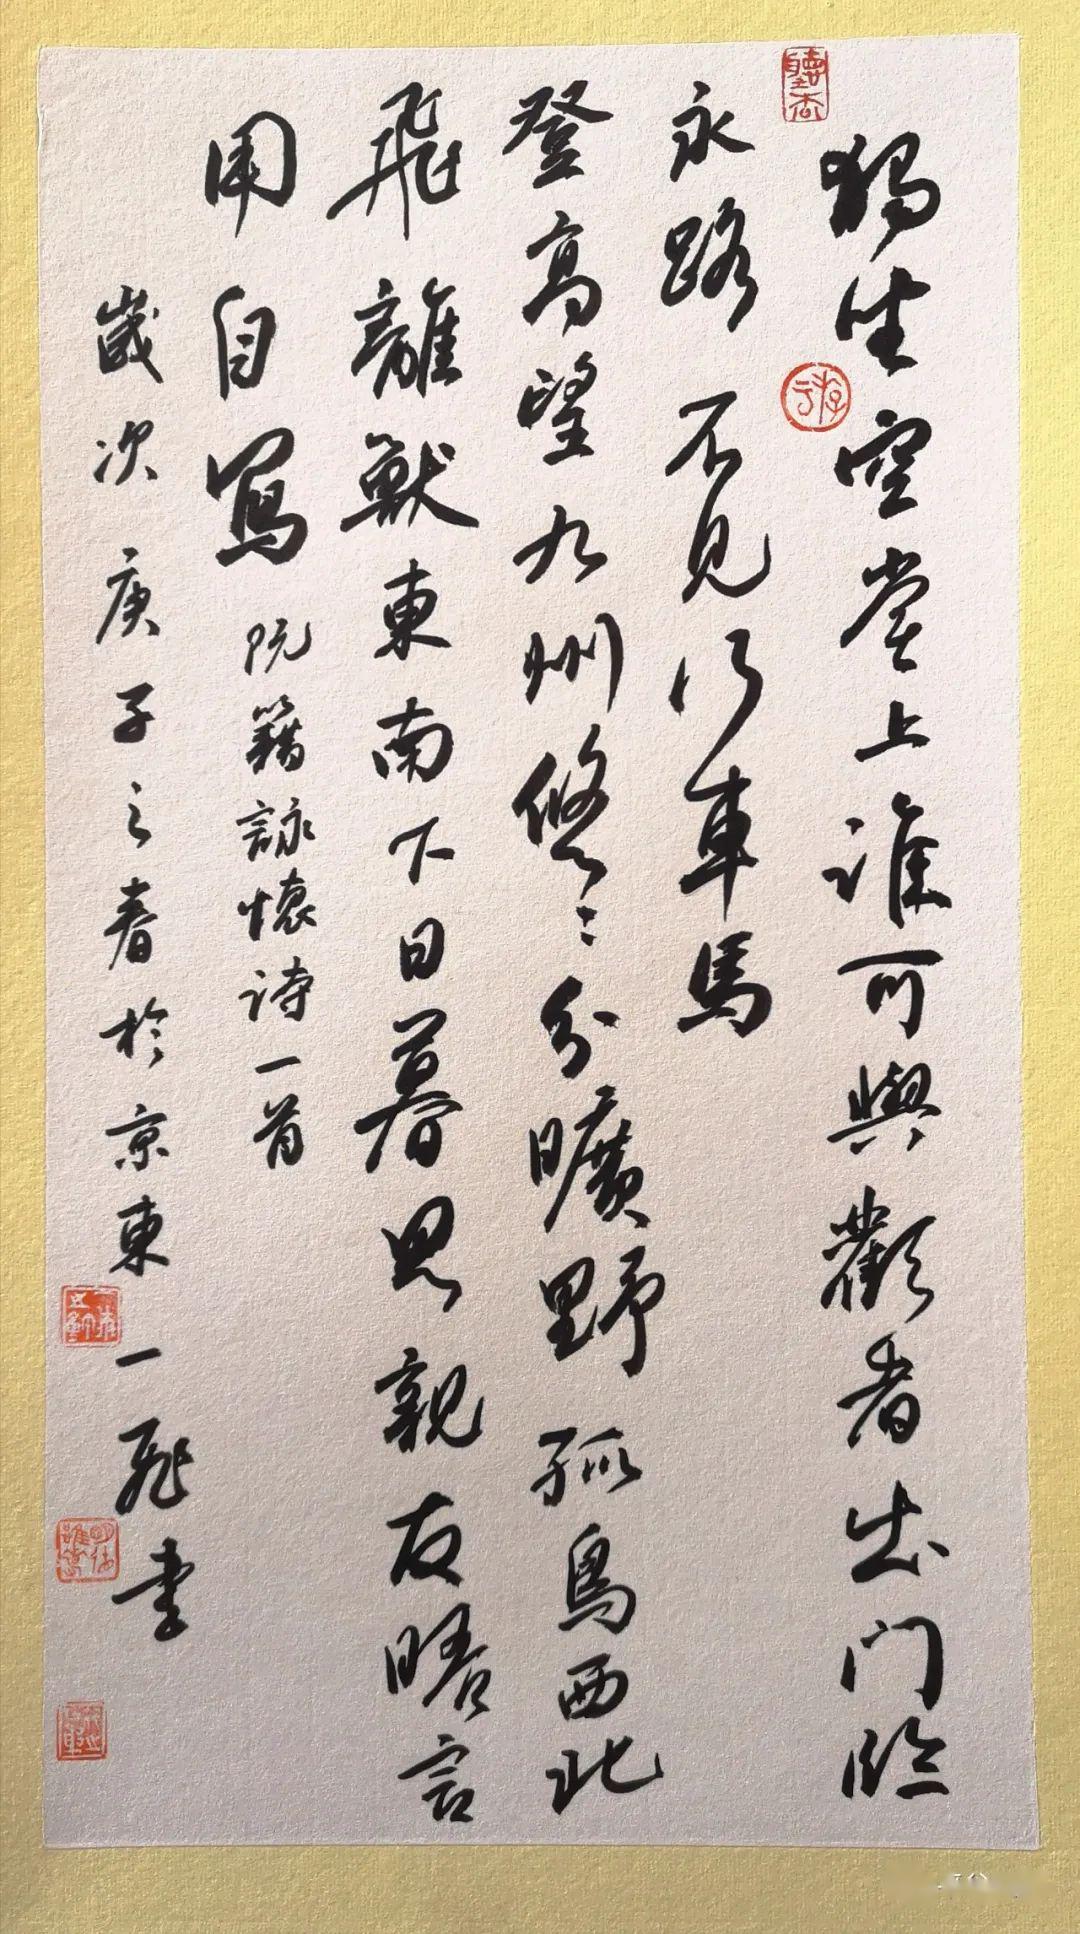 獨坐空堂上誰可與歡者出门臨
永路不見行車馬
登高望九州悠〻分曠野孤鳥西北
飛離獸東南下日暮思親友晤言
用自寫 阮籍詠懷诗一首
歲次庚子之春於京東一飛書